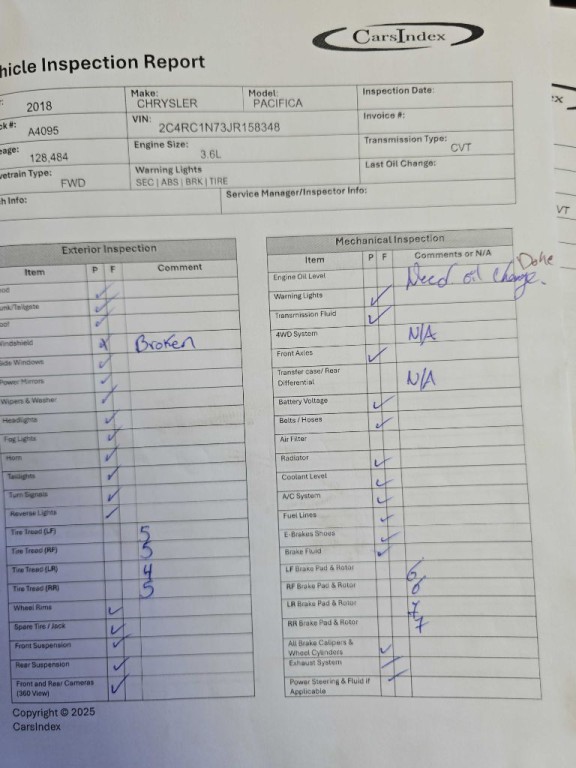 CarsIndex
hicle Inspection Report
2018
Make:
CHRYSLER
Model:
PACIFICA
Inspection Date:
ck #:
A4095
VIN:
2C4RC1N73JR158348
Invoice #:
eage:
128,484
Engine Size:
3.6L
Transmission Type:
CVT
vetrain Type:
FWD
Warning Lights
SEC | ABS | BRK | TIRE
Last Oil Change:
h Info:
Service Manager/Inspector Info:
VT
Exterior Inspection
Item P F Comment
ood ✓
unk/Tailgate ✓
oof ✓
indshield x Broken
ide Windows ✓
Power Mirrors ✓
Wipers & Washer ✓
Headlights ✓
Fog Lights ✓
Horn ✓
Taillights ✓
Turn Signals ✓
Reverse Lights ✓
Tire Tread (LF) 5
Tire Tread (RF) 5
Tire Tread (LR) 4
Tire Tread (RR) 5
Wheel Rims ✓
Spare Tire / Jack ✓
Front Suspension ✓
Rear Suspension ✓
Front and Rear Cameras
(360 View) ✓
Copyright © 2025
CarsIndex
Mechanical Inspection
Item P F Comments or N/A
Engine Oil Level Need oil change. Done
Warning Lights ✓
Transmission Fluid ✓
4WD System N/A
Front Axles ✓
Transfer case/ Rear
Differential N/A
Battery Voltage ✓
Belts / Hoses ✓
Air Filter
Radiator ✓
Coolant Level ✓
A/C System ✓
Fuel Lines ✓
E-Brakes Shoes ✓
Brake Fluid ✓
LF Brake Pad & Rotor 6
RF Brake Pad & Rotor 6
LR Brake Pad & Rotor 7
RR Brake Pad & Rotor 7
All Brake Calipers &
Wheel Cylinders ✓
Exhaust System ✓
Power Steering & Fluid if
Applicable ✓